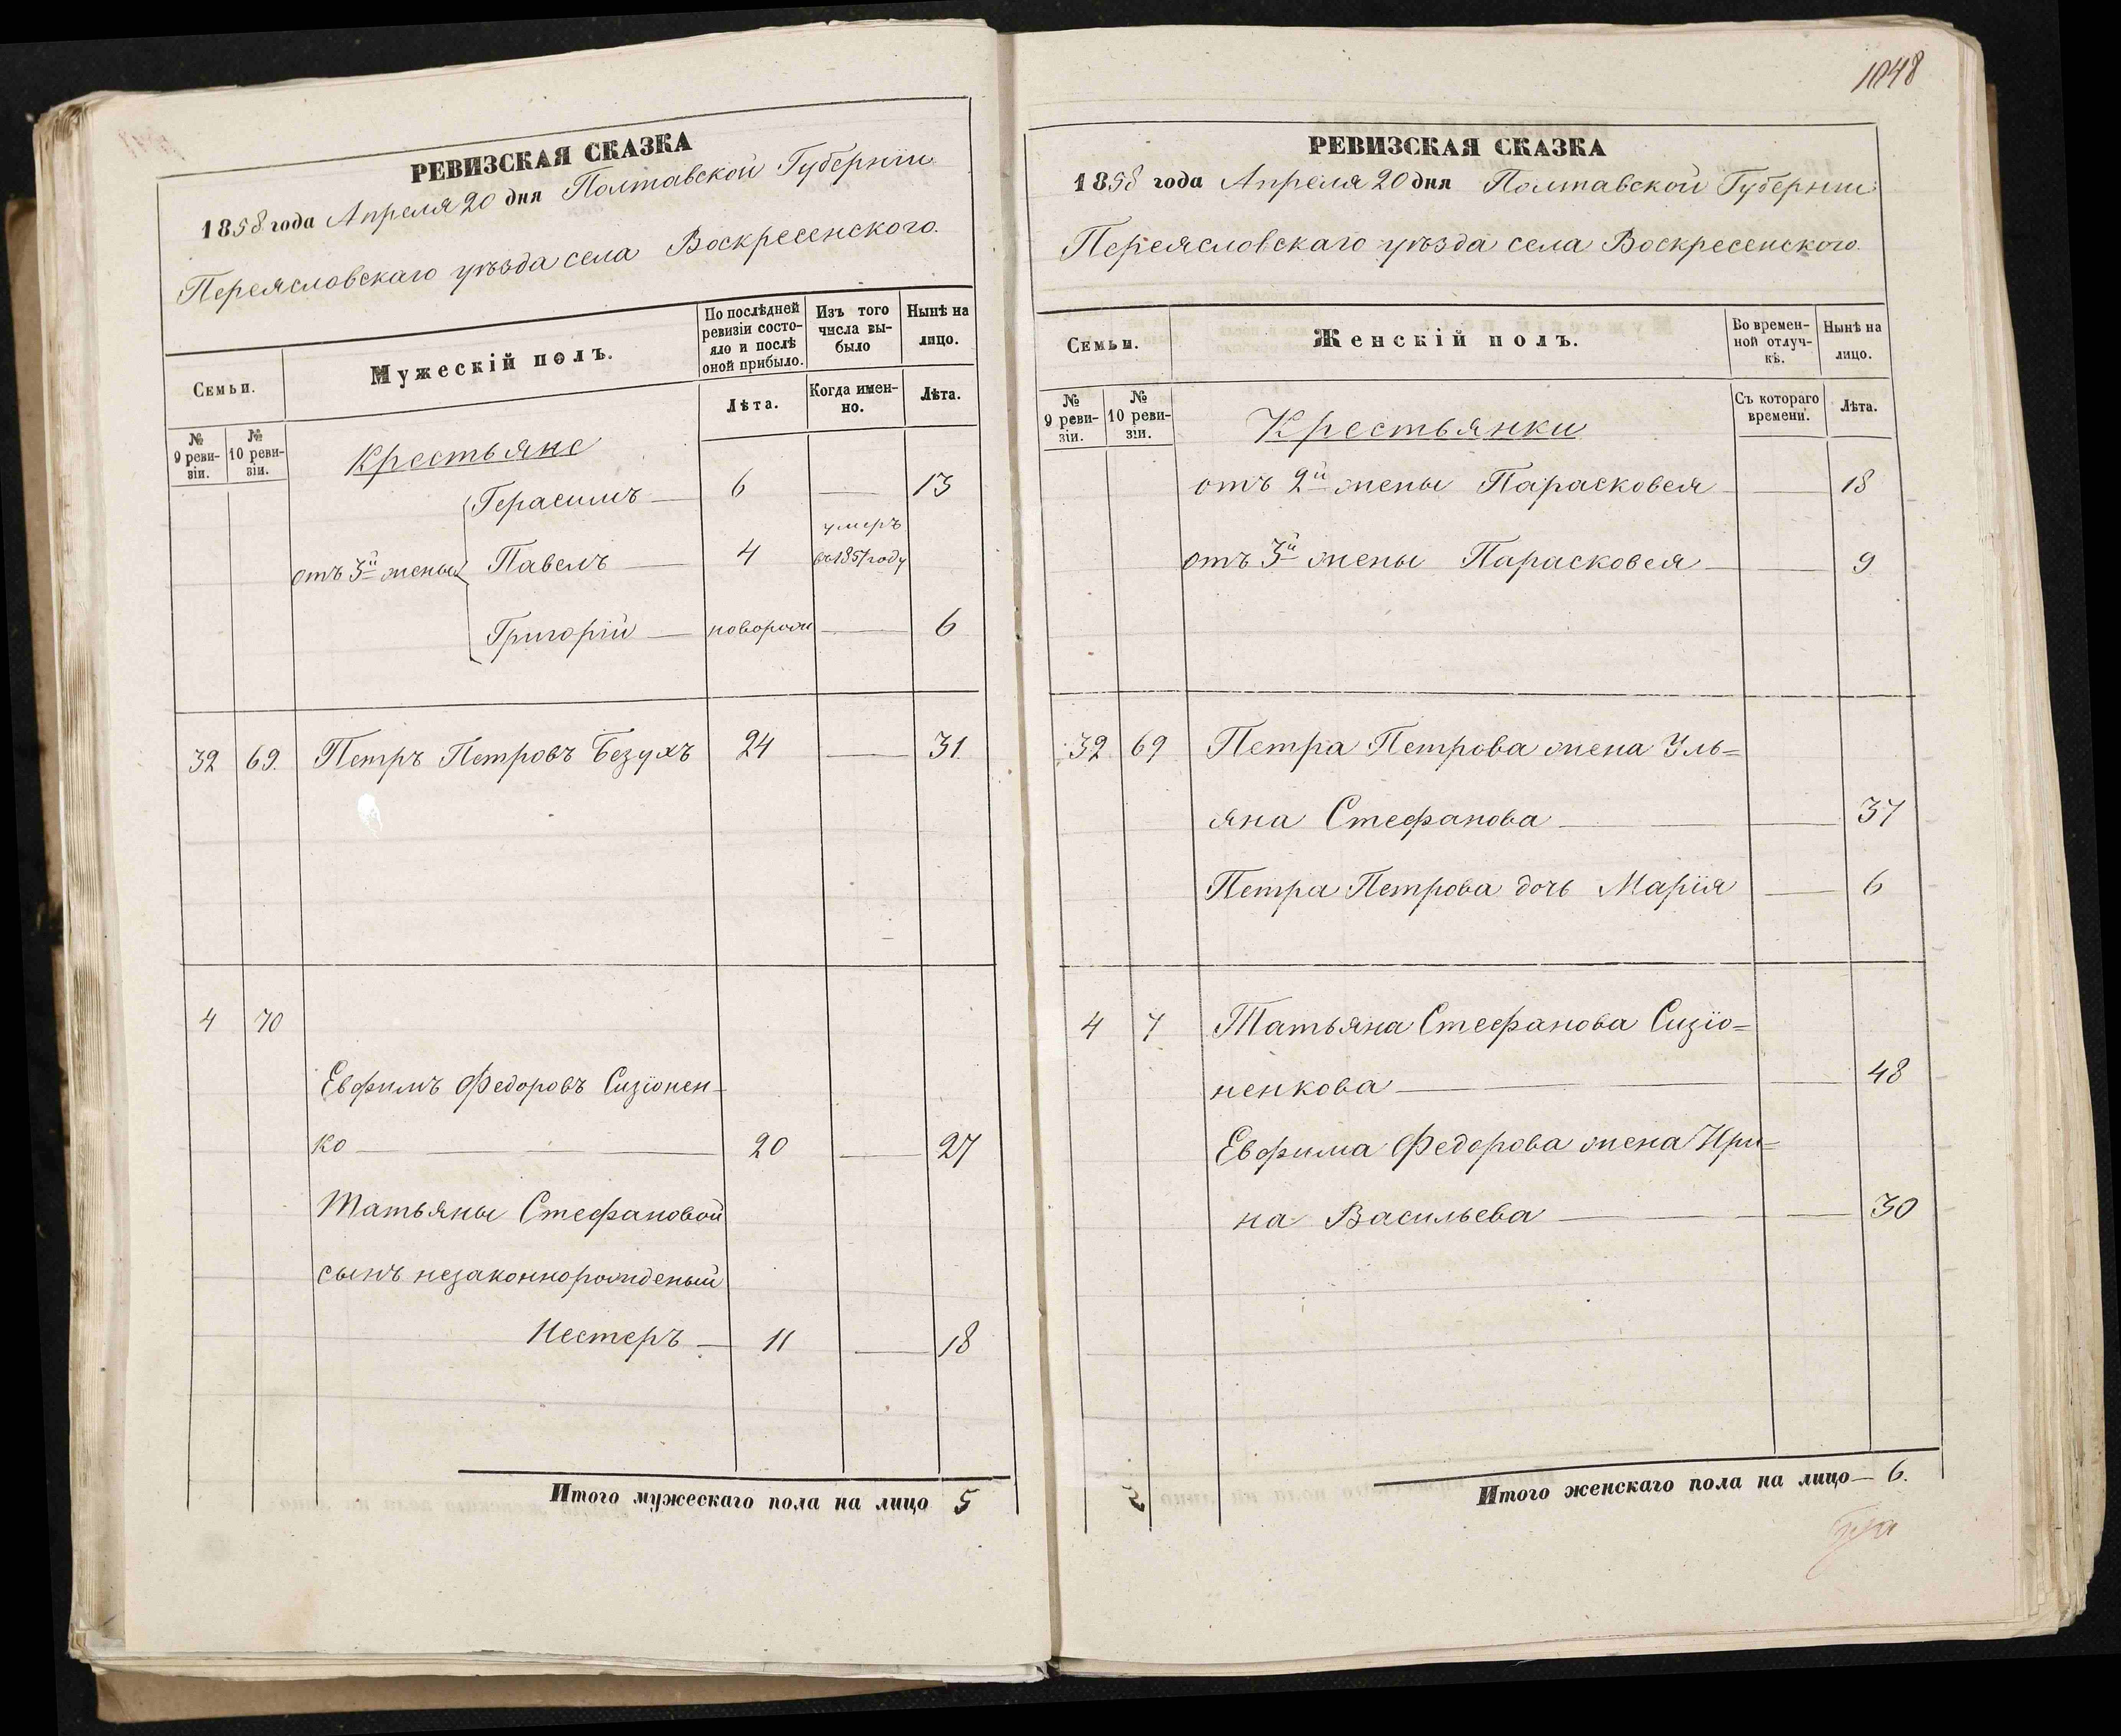 РЕВИЗСКАЯ СКАЗКА
1858 года Апреля 20 дня Полтавской Губерніи
Переясловскаго уѣзда села Воскресенского.
Семьи.
Мужескій полъ.
По послѣдней ревизіи состояло и послѣ оной прибыло.
Изъ того числа выбыло
Нынѣ на лицо.
№ 9 ревизіи.
№ 10 ревизіи.
Лѣта.
Когда именно.
Лѣта.
Крестьяне
Герасимъ — 6 — 13
умеръ
отъ 3й жены Павелъ — 4 въ 1857 году
Григорій — новорож — 6
32 69. Петръ Петровъ Безухъ 24 — 31.
4 70
Евфимъ Федоровъ Сизіонен-
ко — 20 — 27
Татьяны Стефановой
сынъ незаконнорожденый
Нестеръ — 11 — 18
Итого мужескаго пола на лицо 5
1048
РЕВИЗСКАЯ СКАЗКА
1858 года Апреля 20 дня Полтавской Губерніи
Переясловскаго уѣзда села Воскресенского.
Семьи.
Женскій полъ.
Во временной отлучкѣ.
Нынѣ на лицо.
№ 9 ревизіи.
№ 10 ревизіи.
Съ котораго времени.
Лѣта.
Крестьянки
отъ 2й жены Парасковея — 18
отъ 3й жены Парасковея — 9
32. 69 Петра Петрова жена Уль=
яна Стефанова — 37
Петра Петрова дочь Марія — 6
4 7 Татьяна Стефанова Сизіо=
ненкова — 48
Евфима Федорова жена Ири=
на Васильева — 30
Итого женскаго пола на лицо — 6.